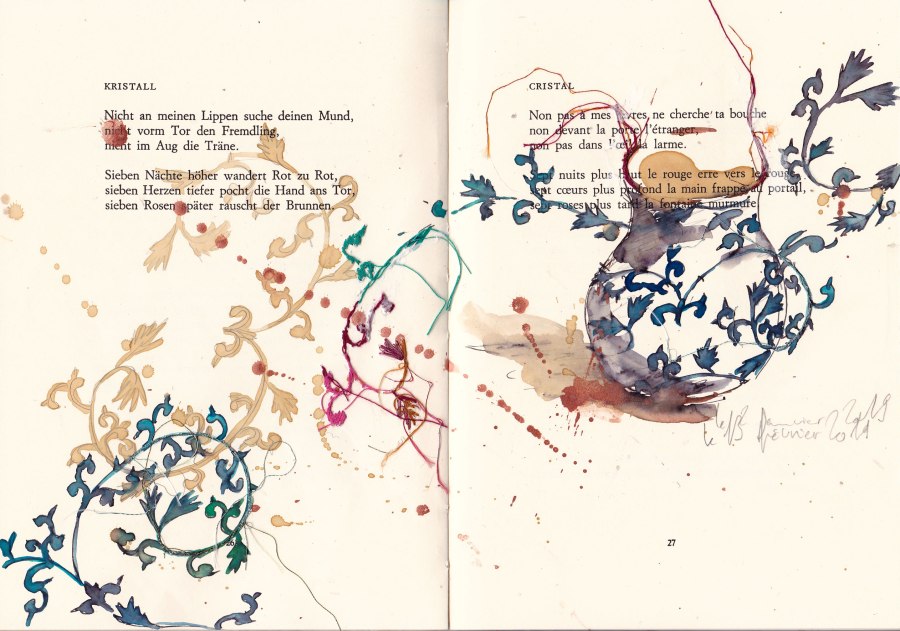 KRISTALL
Nicht an meinen Lippen suche deinen Mund,
nicht vorm Tor den Fremdling,
nicht im Aug die Träne.
Sieben Nächte höher wandert Rot zu Rot,
sieben Herzen tiefer pocht die Hand ans Tor,
sieben Rosen später rauscht der Brunnen.
26
CRISTAL
Non pas à mes lèvres ne cherche ta bouche
non devant la porte l'étranger,
non pas dans l'œil la larme.
Sept nuits plus haut le rouge erre vers le rouge,
sept cœurs plus profond la main frappe au portail,
sept roses plus tard la fontaine murmure.
le 13
février 2019
27